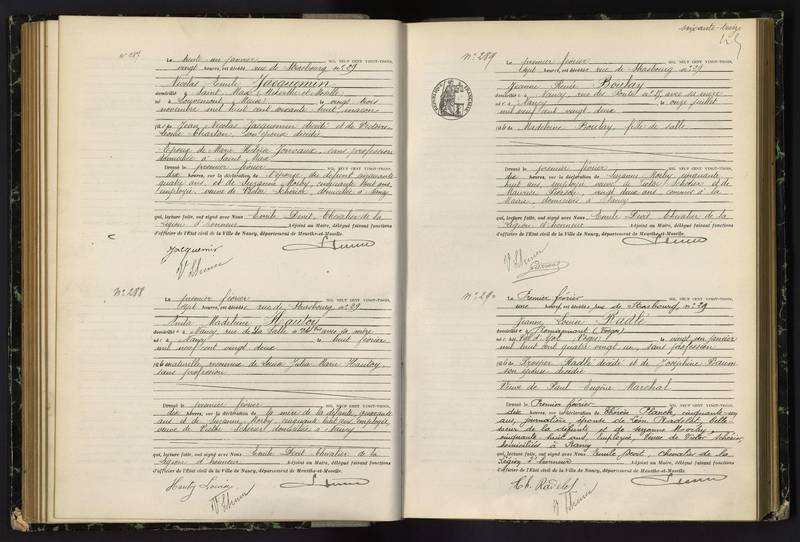 soixante-treize
N° 287
Le trente un janvier MIL NEUF CENT VINGT-TROIS,
vingt heures, est décédé rue de Strasbourg n° 29
Nicolas Emile Jacquemin
domicilié à Saint Max Meurthe-et-Moselle
né à (Meuse) le vingt trois
novembre mil huit cent soixante huit, maçon
fils de Jean Nicolas Jacquemin décédé et de Victoire
Charton son épouse décédée
Epoux de Marie Jouvaux, sans profession
domiciliée à Saint Max
Dressé le premier février MIL NEUF CENT VINGT-TROIS,
dix heures, sur la déclaration de l'épouse du défunt quarante
quatre ans, et de Suzanne Morby, cinquante huit ans,
employée, veuve de Victor Scherer, domiciliées à Nancy
qui, lecture faite, ont signé avec Nous Emile Devit, Chevalier de la
Légion d'honneur Adjoint au Maire, délégué faisant fonctions
d'officier de l'Etat civil de la Ville de Nancy, département de Meurthe-et-Moselle.
Jacquemin
N° 288
Le premier février MIL NEUF CENT VINGT-TROIS,
sept heures, est décédée rue de Strasbourg n° 29
Madeleine Hautoy
domiciliée à Nancy, rue de La Salle n° 24 bis avec sa mère
née à Nancy le huit février
mil neuf cent vingt deux
fille naturelle, reconnue de Louise Julie Marie Hautoy,
sans profession
Dressé le premier février MIL NEUF CENT VINGT-TROIS,
dix heures, sur la déclaration de la mère de la défunte, quarante
ans et de Suzanne Morby, cinquante huit ans, employée,
veuve de Victor Scherer domiciliées à Nancy
qui, lecture faite, ont signé avec Nous Emile Devit Chevalier de la
Légion d'honneur Adjoint au Maire, délégué faisant fonctions
d'officier de l'Etat civil de la Ville de Nancy, département de Meurthe-et-Moselle.
Hauty Louise
N° 289
Le premier février MIL NEUF CENT VINGT-TROIS,
sept heures, est décédée rue de Strasbourg n° 29
Jeanne Renée Boulay
domiciliée à Nancy, rue avec sa mère
née à Nancy le onze juillet
mil neuf cent vingt deux
fille de Madeleine Boulay, fille de salle
Dressé le premier février MIL NEUF CENT VINGT-TROIS,
dix heures, sur la déclaration de Suzanne Morby, cinquante
huit ans, employée, veuve de Victor Scherer et de
Maurice Pierson, vingt deux ans, commis à la
Mairie, domiciliés à Nancy
qui, lecture faite, ont signé avec Nous Emile Devit Chevalier de la
Légion d'honneur Adjoint au Maire, délégué faisant fonctions
d'officier de l'Etat civil de la Ville de Nancy, département de Meurthe-et-Moselle.
N° 290
Le Premier février MIL NEUF CENT VINGT-TROIS,
une heure, est décédée, rue de Strasbourg, n° 29
Jeanne Louise Radlé
domiciliée à (Vosges)
née au Val d'Ajol (Vosges) le vingt un janvier
mil huit cent quatre vingt un, sans profession
fille de Prosper Radlé décédé et de Joséphine Baum
son épouse décédée
Veuve de Paul Eugène Maréchal
Dressé le Premier février MIL NEUF CENT VINGT-TROIS,
dix heures, sur la déclaration de Thérèse Planck, cinquante-un
ans, journalière, épouse de Léon Radelet, belle-
sœur de la défunte et de Suzanne Morby,
cinquante huit ans, Employée, Veuve de Victor Scherer,
domiciliées à Nancy
qui, lecture faite, ont signé avec Nous Emile Devit, Chevalier de la
Légion d'honneur Adjoint au Maire, délégué faisant fonctions
d'officier de l'Etat civil de la Ville de Nancy, département de Meurthe-et-Moselle.
Th. Radelet